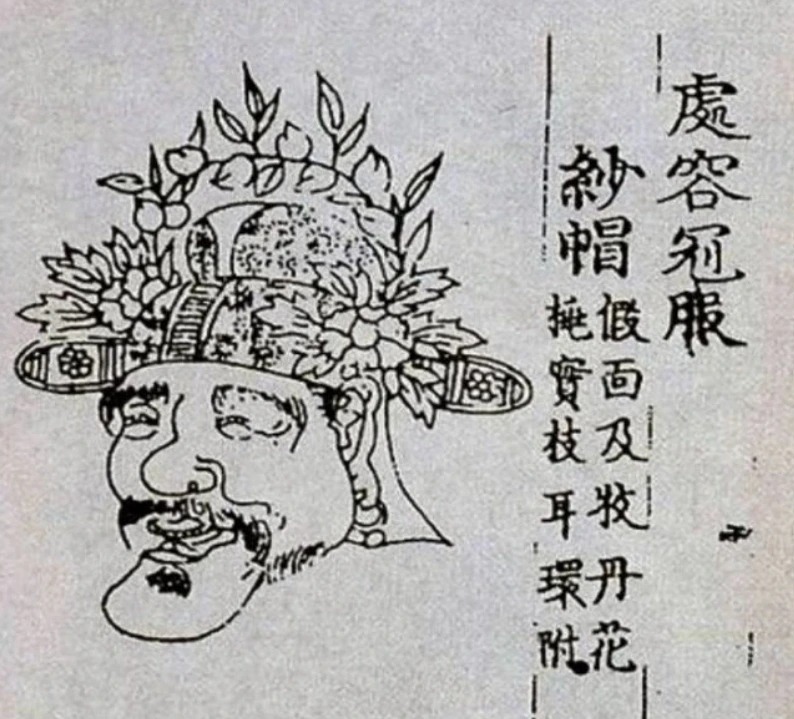 處容冠服
紗帽
假面及牧丹花
實枝耳環附